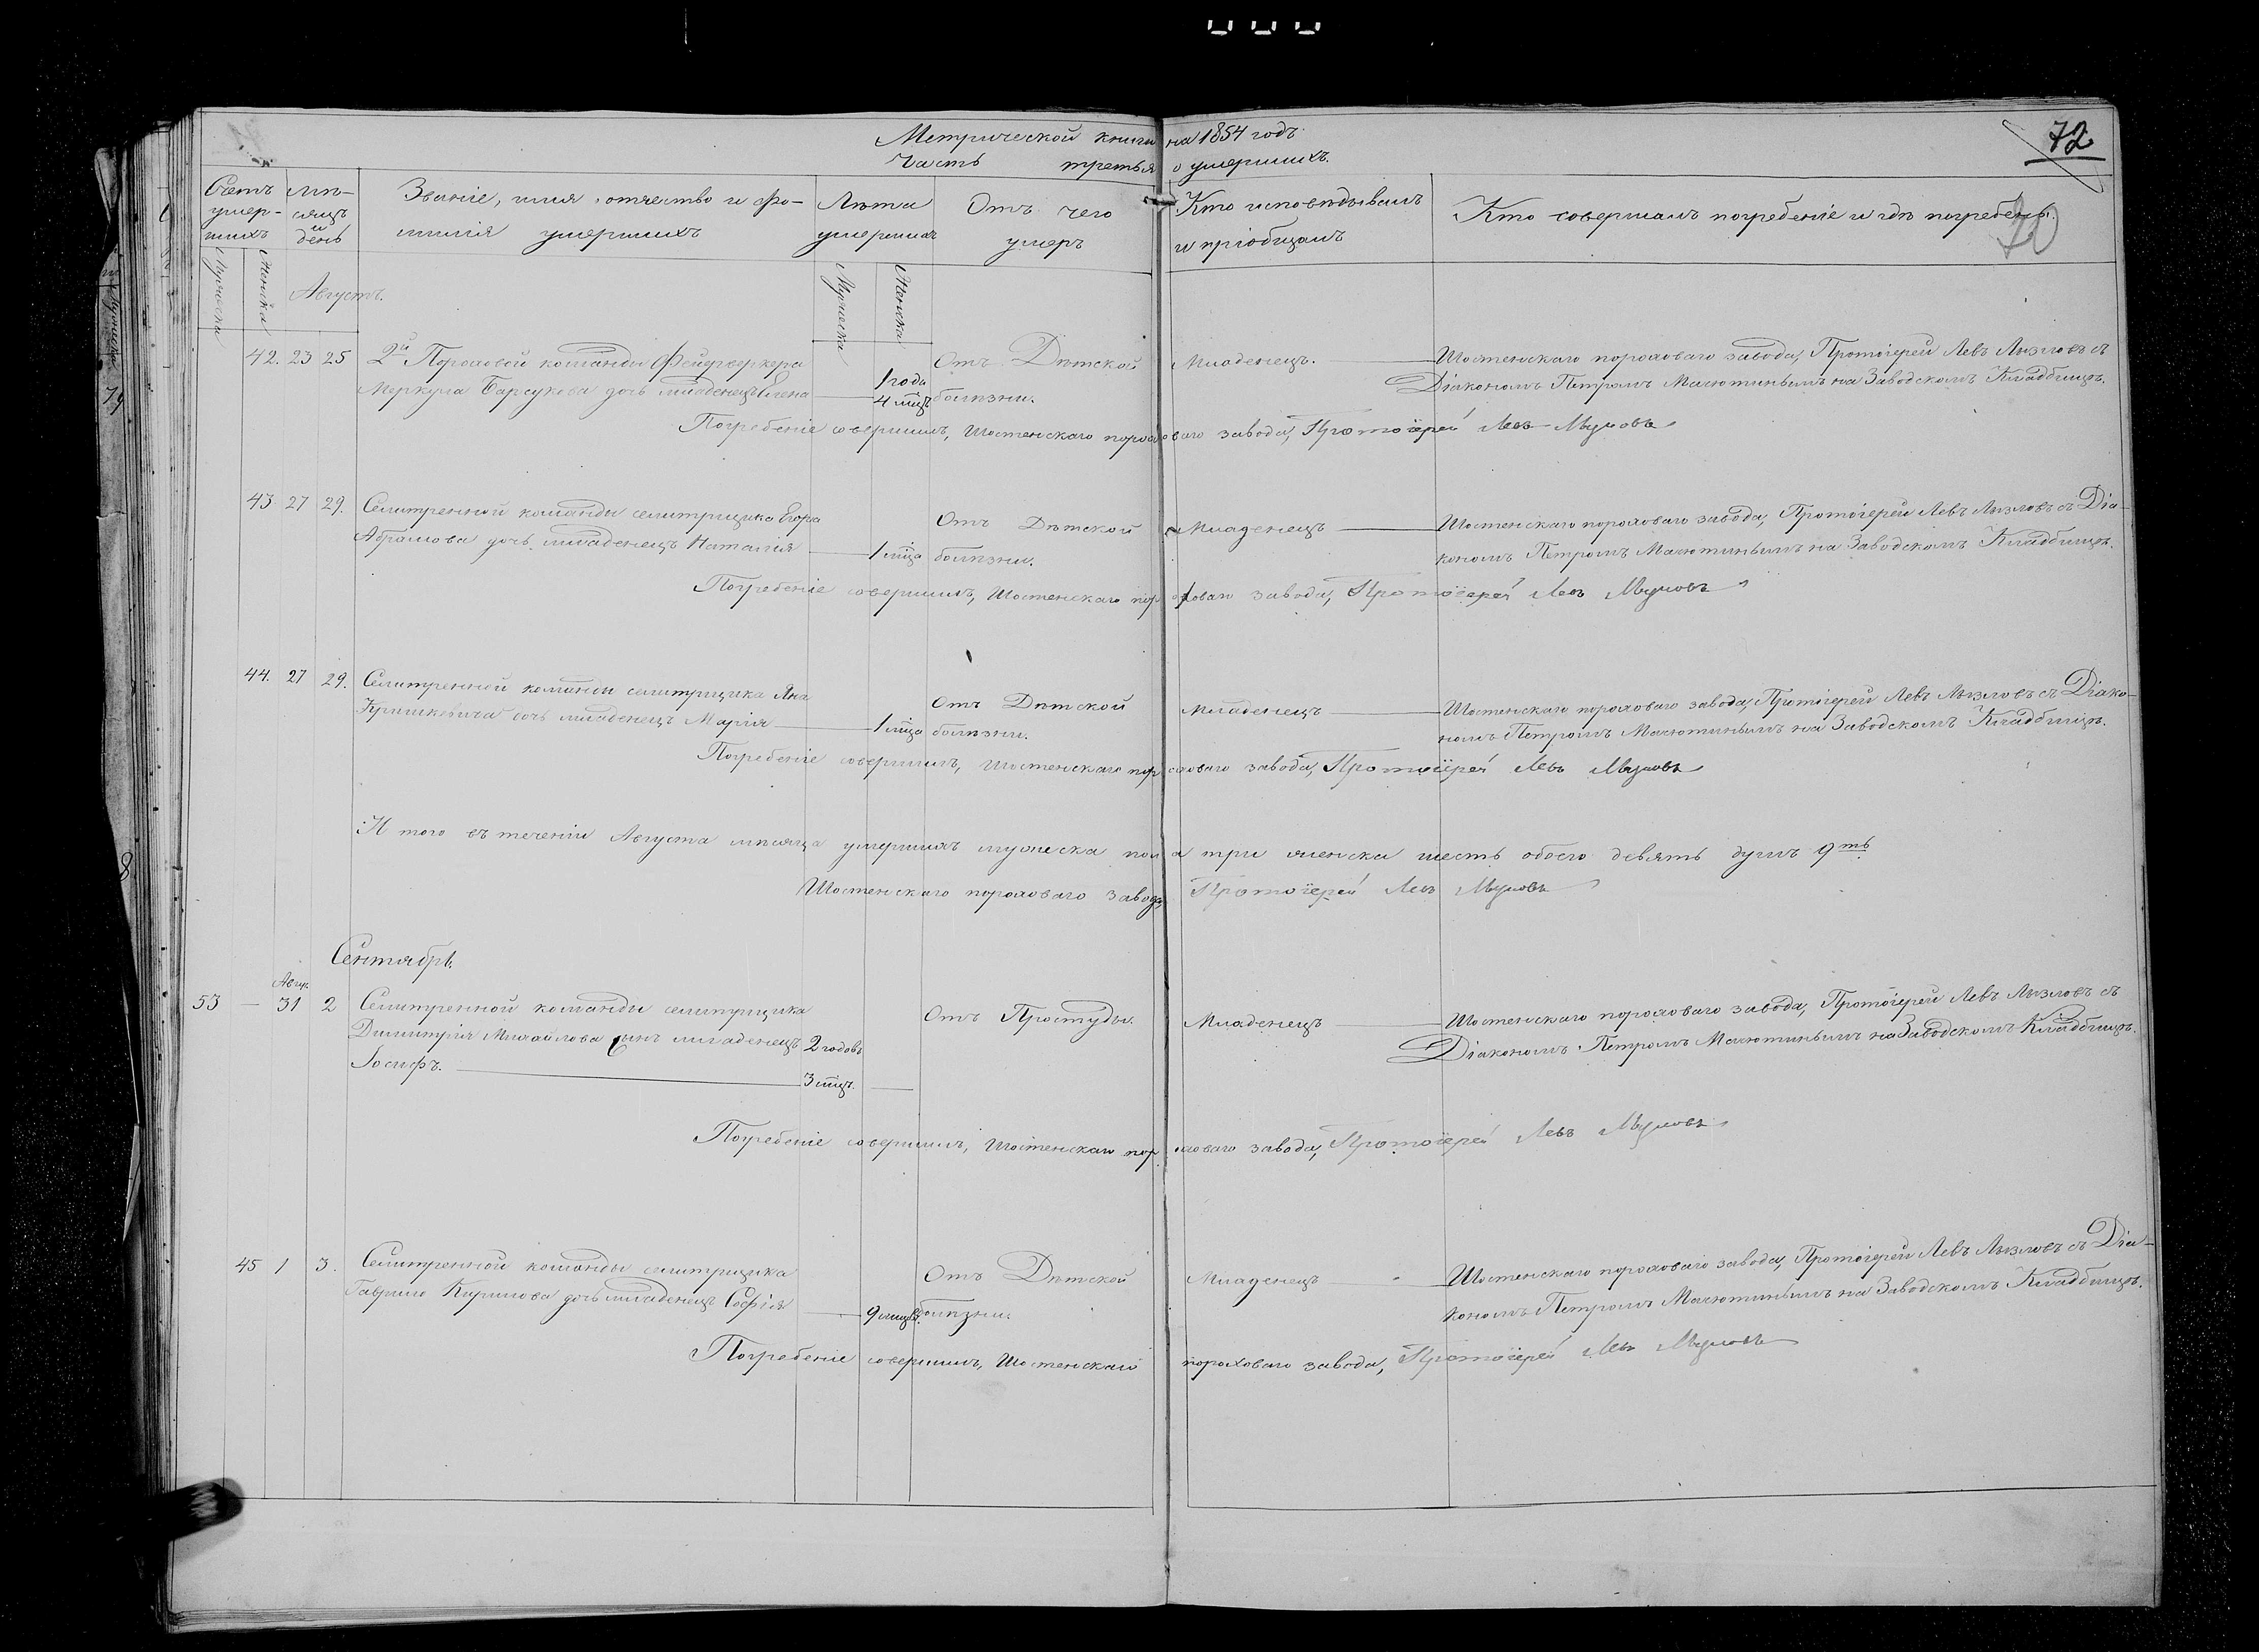 Метрической книги на 1854 годъ.
Часть третья о умершихъ.
72
70
Счетъ умер-шихъ
Мѣ-сяцъ и день
Званіе, имя, отчество и фа-милія умершихъ
Лѣта умершихъ
Отъ чего умеръ
Кто исповѣдывалъ и пріобщалъ
Кто совершалъ погребеніе и гдѣ погребены.
Мужеска Женска Августъ. Мужеска Женска
42. 23 25 2й Пороховой команды Фейерверкера Отъ Дѣтской Младенецъ. Шостенскаго пороховаго завода, Протоіерей Левъ Мызловъ съ
Меркула Барсукова дочь младенецъ Елена 1 года 4 мцъ болѣзни. Діакономъ Петромъ Малютинымъ на Заводскомъ Кладбищѣ.
Погребеніе совершилъ, Шостенскаго пороховаго завода, Протоіерей Левъ Мызловъ
43. 27 29. Селитренной команды селитрщика Егора Отъ Дѣтской Младенецъ Шостенскаго пороховаго завода, Протоіерей Левъ Мызловъ съ Діа-
Абрамова дочь младенецъ Наталія 1 мца болѣзни. кономъ Петромъ Малютинымъ на Заводскомъ Кладбищѣ.
Погребеніе совершилъ, Шостенскаго пороховаго завода, Протоіерей Левъ Мызловъ
44. 27 29. Селитренной команды селитрщика Яна Отъ Дѣтской Младенецъ Шостенскаго пороховаго завода, Протоіерей Левъ Мызловъ съ Діако-
дочь младенецъ Марія 1 мца болѣзни. номъ Петромъ Малютинымъ на Заводскомъ Кладбищѣ.
Погребеніе совершилъ, Шостенскаго пороховаго завода, Протоіерей Левъ Мызловъ
И того въ теченіи Августа мѣсяца умершихъ мужеска пола три женска шесть обоего девять душъ 9ть
Шостенскаго пороховаго завода Протоіерей Левъ Мызловъ
Сентябрь.
Авгу.
53 — 31 2 Селитренной команды селитрщика Отъ Простуды. Младенецъ Шостенскаго пороховаго завода, Протоіерей Левъ Мызловъ съ
Димитрія Михайлова сынъ младенецъ 2 годовъ Діакономъ Петромъ Малютинымъ на Заводскомъ Кладбищѣ.
Іосифъ. 3 мцъ.
Погребеніе совершилъ, Шостенскаго пороховаго завода, Протоіерей Левъ Мызловъ
45 1 3. Селитренной команды селитрщика Отъ Дѣтской Младенецъ Шостенскаго пороховаго завода, Протоіерей Левъ Мызловъ съ Діа-
Гаврило Кирилова дочь младенецъ Софія 9 мцвъ. болѣзни. кономъ Петромъ Малютинымъ на Заводскомъ Кладбищѣ.
Погребеніе совершилъ, Шостенскаго пороховаго завода, Протоіерей Левъ Мызловъ